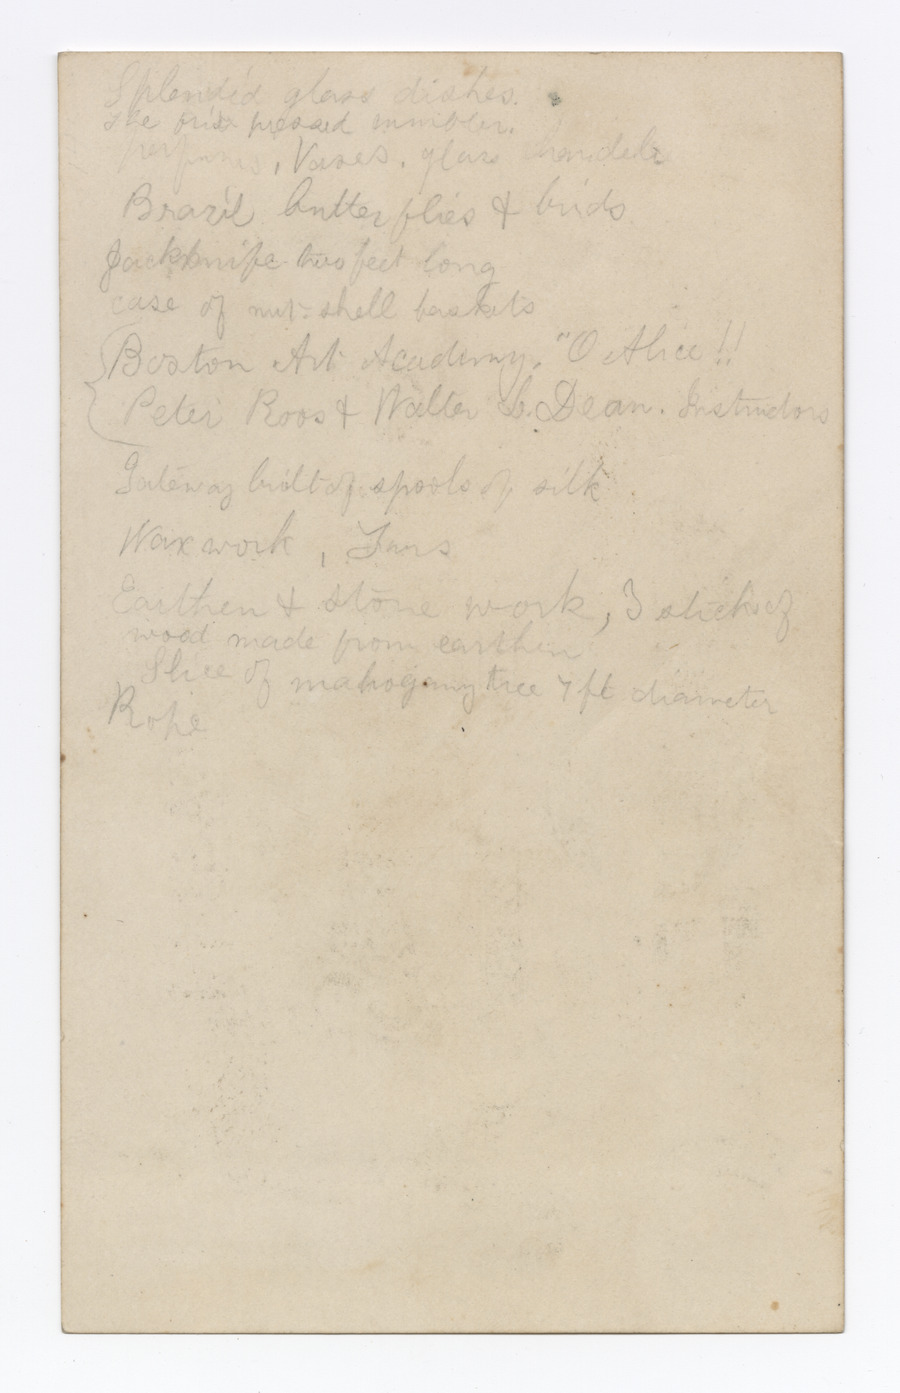 Splendid glass dishes.
The first pressed tumbler.
perfumes, Vases, glass
Brazil butterflies & birds
Jackknife two feet long
case of nut-shell baskets
Boston Art Academy. "O Alice!!
Peter Roos & Walter L. Dean. Instructors
Gateway built of spools of silk
Wax work, Fans
Earthen & stone work, 3 sticks of
wood made from earthen
Slice of mahogany tree 7 ft diameter
Rope